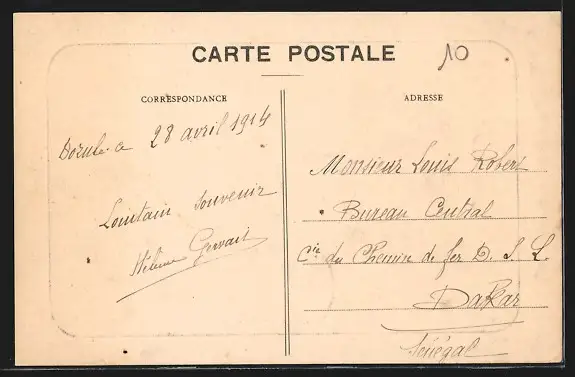 CARTE POSTALE
10
CORRESPONDANCE
28 avril 1914
Lointain souvenir
Gervais
ADRESSE
Monsieur Louis Robert
Bureau Central
Cie du Chemin de fer D. S. L.
Dakar
Sénégal